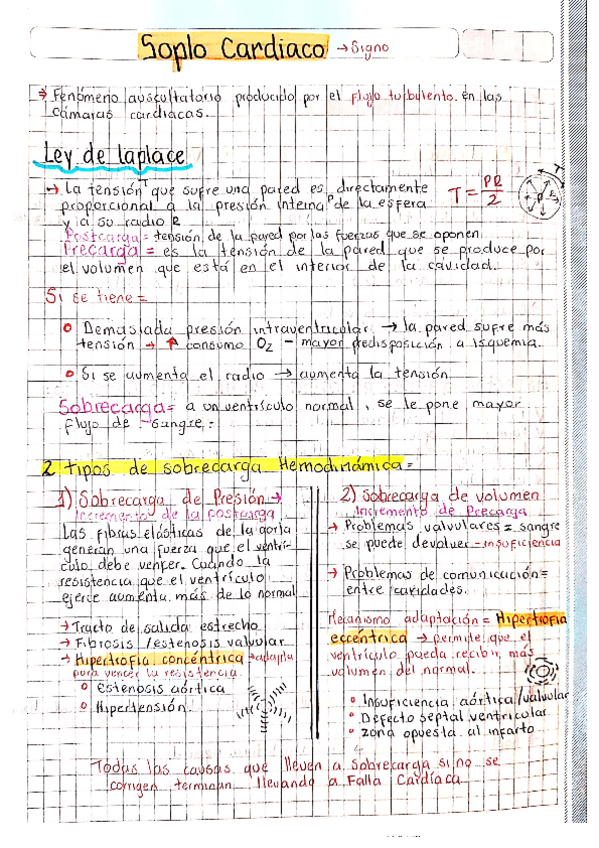 Soplo Cardiaco → Signo
→ Fenómeno auscultatorio producido por el flujo turbulento en las
cámaras cardiacas.
Ley de laplace
→ La tensión T que sufre una pared es directamente
proporcional a la presión interna P de la esfera
y a su radio R
T = PR/2
T
P
R
Postcarga = tensión de la pared por las fuerzas que se oponen.
Precarga = es la tensión de la pared que se produce por
el volumen que está en el interior de la cavidad.
Si se tiene =
Demasiada presión intraventricular → la pared sufre más
tensión → ↑ consumo O2 – mayor predisposición a isquemia.
Si se aumenta el radio → aumenta la tensión
Sobrecarga = a un ventrículo normal, se le pone mayor
flujo de sangre.
2 tipos de sobrecarga Hemodinámica =
1) Sobrecarga de Presión →
incremento de la postcarga
Las fibras elásticas de la aorta
generan una fuerza que el ventrí-
culo debe vencer. Cuando la
resistencia que el ventrículo
ejerce aumenta más de lo normal
→ Tracto de salida estrecho
→ Fibrosis / estenosis valvular
→ Hipertrofia concéntrica → adapta
para vencer la resistencia
Estenosis aórtica
Hipertensión.
2) Sobrecarga de volumen
Incremento de Precarga
→ Problemas valvulares = sangre
se puede devolver – insuficiencia
→ Problemas de comunicación =
entre cavidades.
Mecanismo adaptación = Hipertrofia
eccéntrica → permite que el
ventrículo pueda recibir más
volumen del normal.
Insuficiencia aórtica/valvular
Defecto septal ventricular
Zona opuesta al infarto
Todas las causas que lleven a sobrecarga si no se
corrigen terminan llevando a Falla Cardíaca